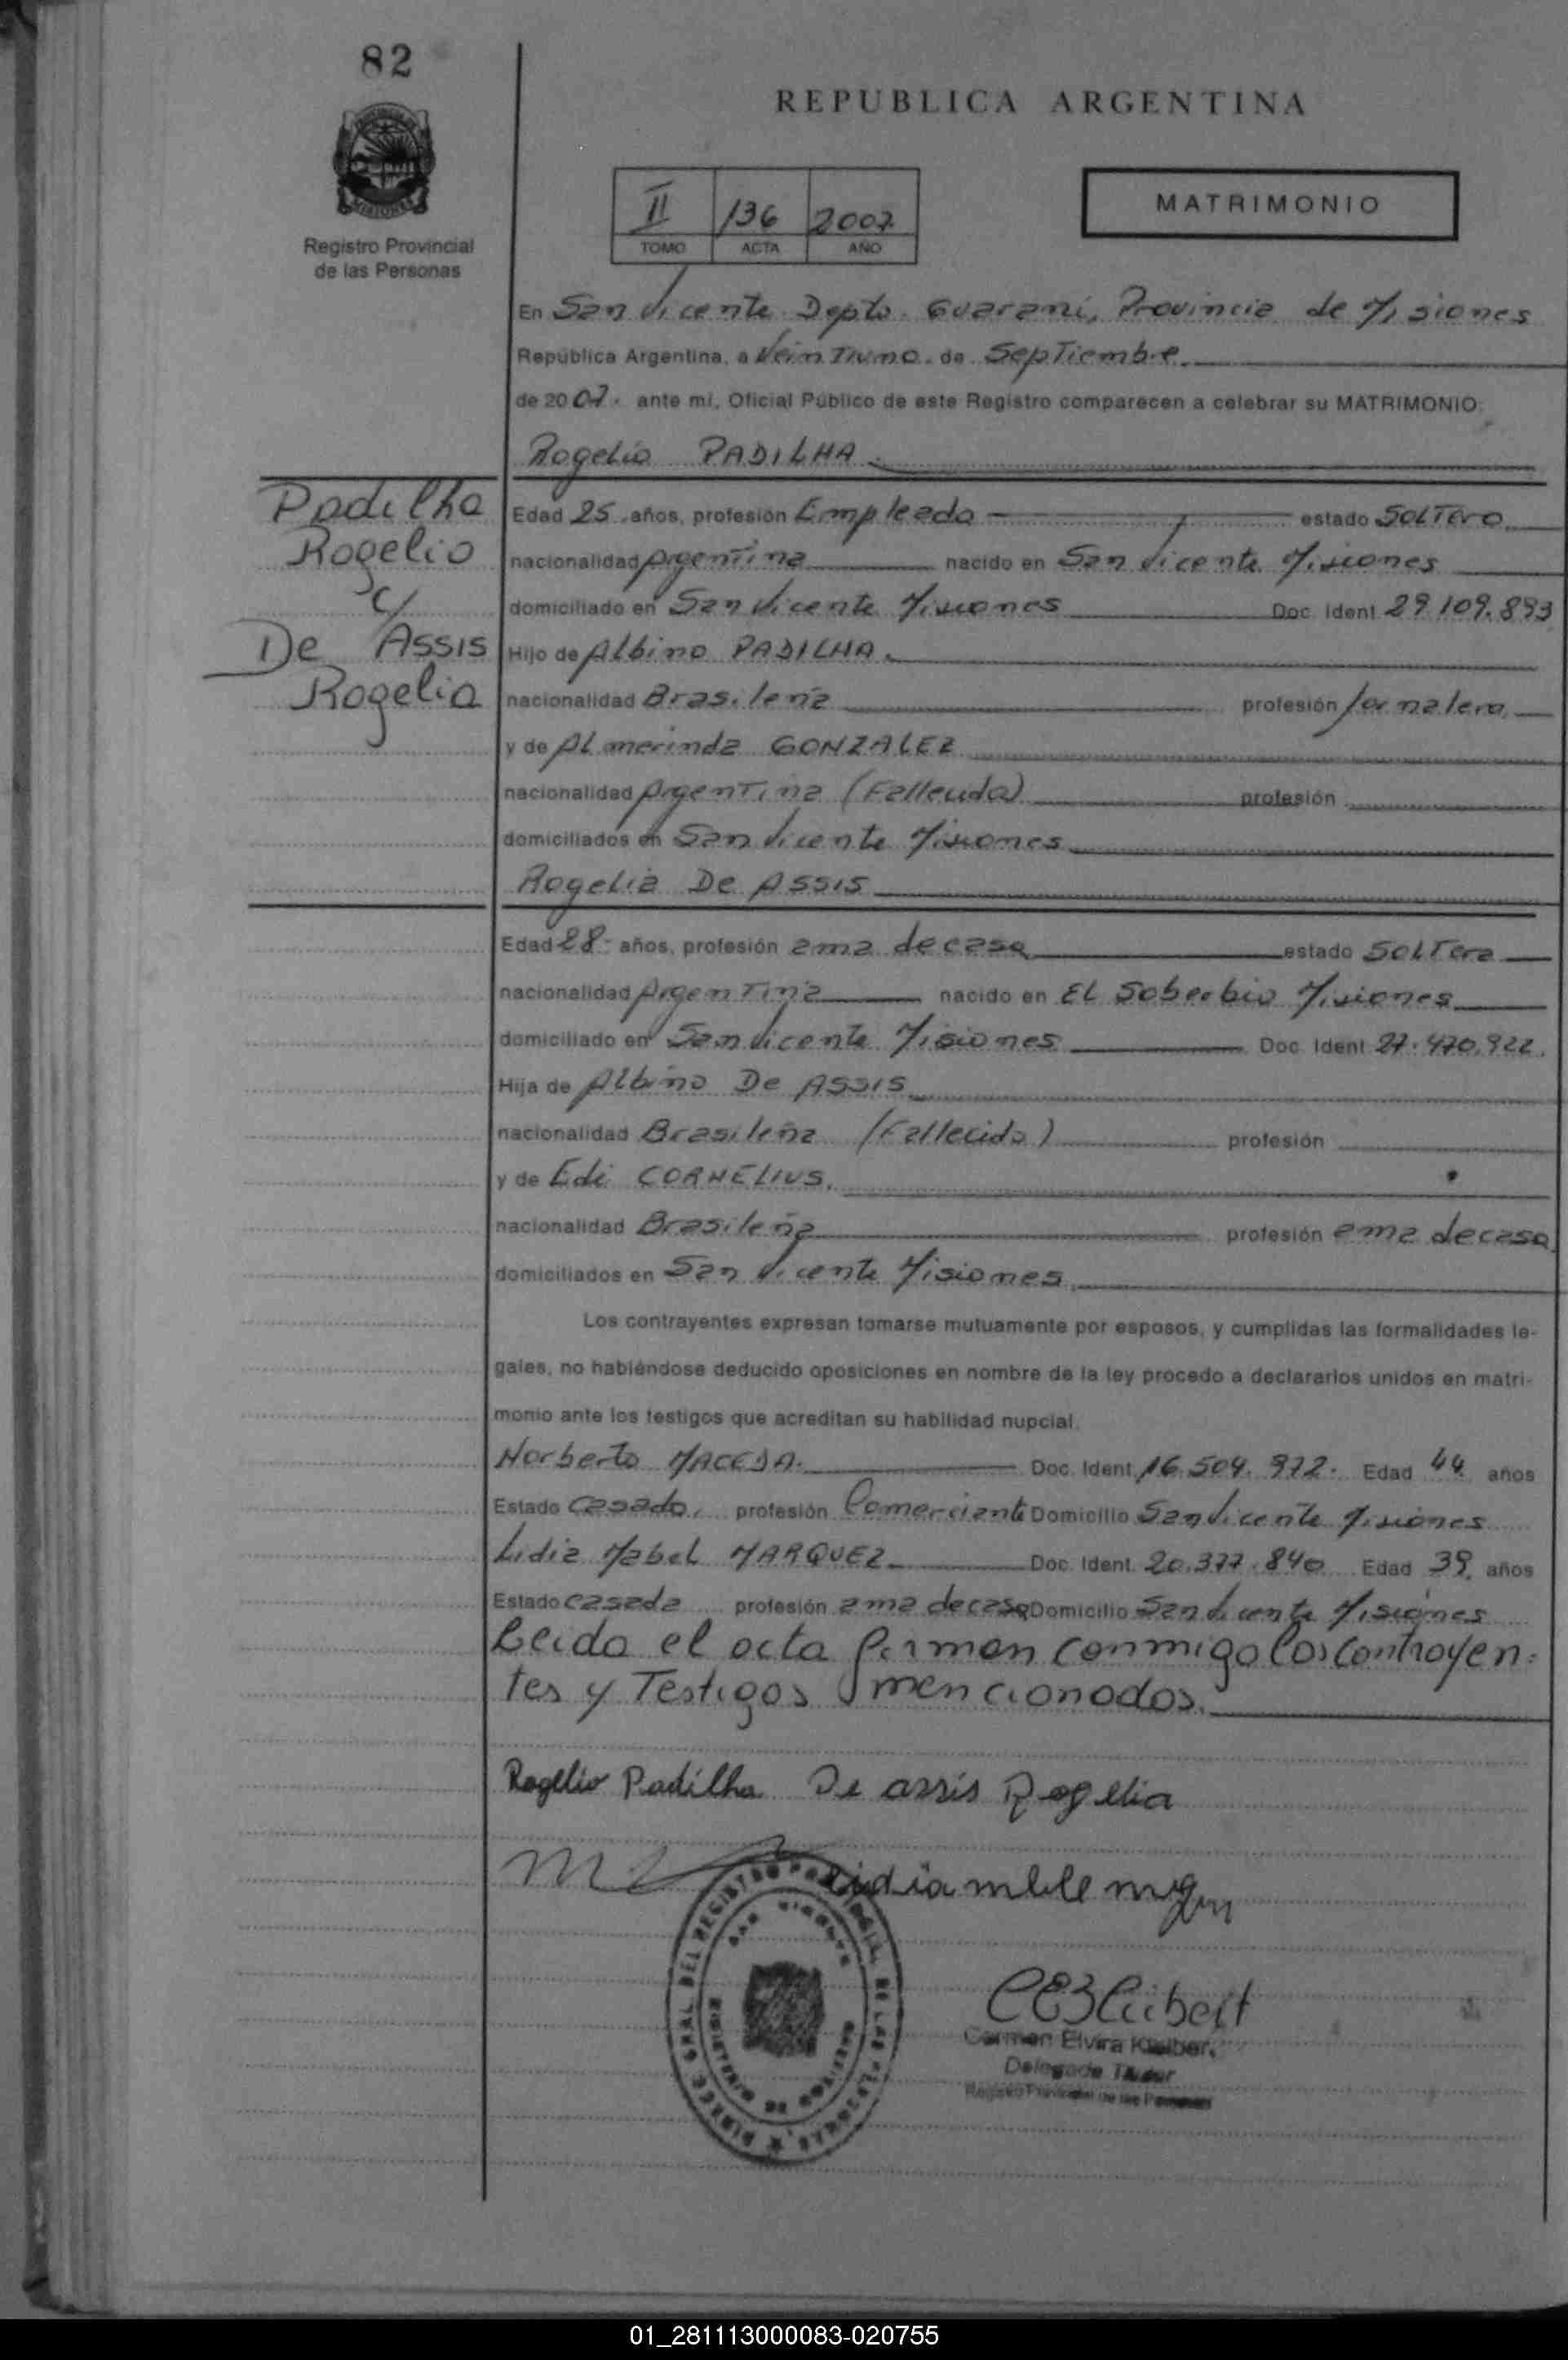 82
REPUBLICA ARGENTINA
MISIONES
Registro Provincial
de las Personas
II 136 2007
TOMO ACTA AÑO
MATRIMONIO
En San Vicente Depto. Guaraní, Provincia de Misiones
República Argentina, a Veintiuno. de Septiembre
de 2007. ante mi, Oficial Público de este Registro comparecen a celebrar su MATRIMONIO:
Rogelio PADILHA.
Padilha
Rogelio
c/
De Assis
Rogelia
Edad 25 años, profesión Empleado estado Soltero
nacionalidad Argentina nacido en San Vicente Misiones
domiciliado en San Vicente Misiones Doc. Ident 29.109.893
Hijo de Albino PADILHA.
nacionalidad Brasileña profesión Jornalero
y de Almerinda GONZALEZ
nacionalidad Argentina (Fallecida) profesión
domiciliados en San Vicente Misiones
Rogelia De Assis
Edad 28 años, profesión ama de casa estado Soltera
nacionalidad Argentina nacido en El Soberbio Misiones
domiciliado en San Vicente Misiones Doc. Ident 27.470.922.
Hija de Albino De Assis
nacionalidad Brasileña (Fallecido) profesión
y de Edi CORNELIUS.
nacionalidad Brasileña profesión ama de casa
domiciliados en San Vicente Misiones
Los contrayentes expresan tomarse mutuamente por esposos, y cumplidas las formalidades le-
gales, no habiéndose deducido oposiciones en nombre de la ley procedo a declararlos unidos en matri-
monio ante los testigos que acreditan su habilidad nupcial.
Norberto MACEDA. Doc. Ident. 16.504.972. Edad 44 años
Estado Casado, profesión Comerciante Domicilio San Vicente Misiones
Lidia Mabel MARQUEZ Doc. Ident. 20.377.840 Edad 39, años
Estado casada profesión ama de casa Domicilio San Vicente Misiones
Leida el acta firman conmigo los contrayen=
tes y Testigos mencionados.
Rogelio Padilha De assis Rogelia
Lidia
DIRECC. GRAL. DEL REGISTRO PROVINCIAL DE LAS PERSONAS
SAN VICENTE
MINISTERIO DE GOBIERNO
Carmen Elvira
Delegada Titular
Registro Provincial de las Personas
01_281113000083-020755